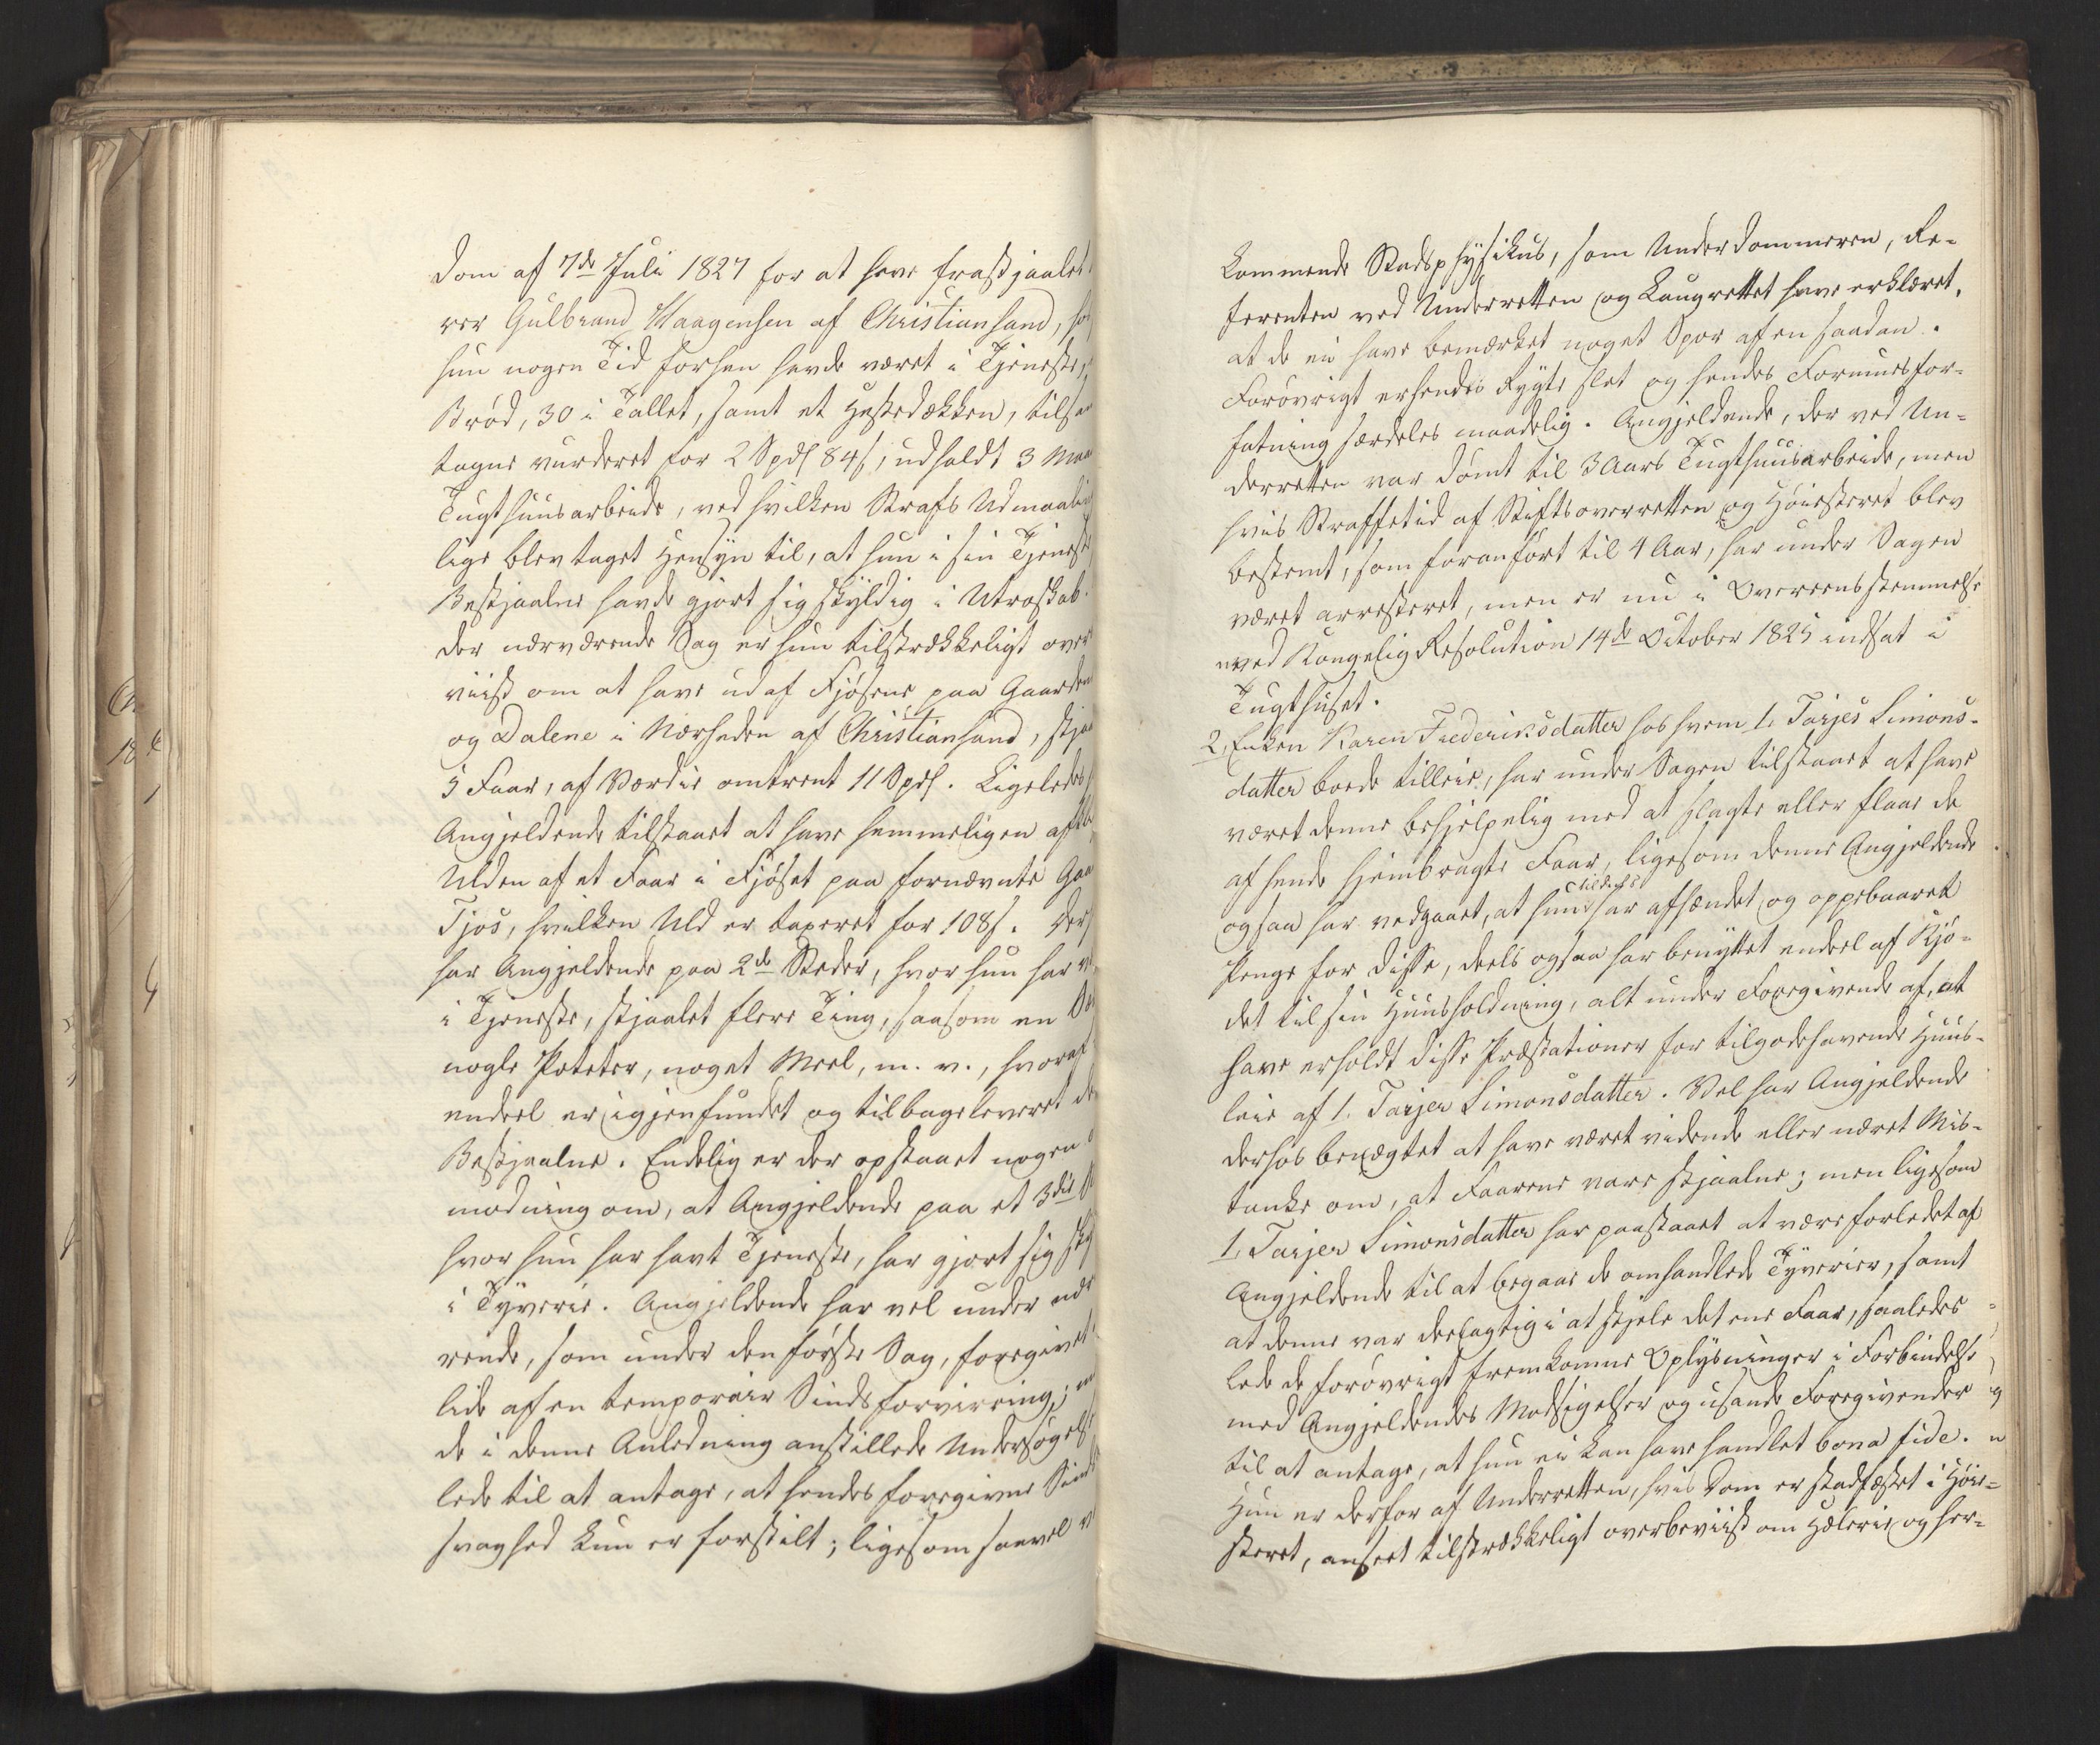 Dom af 7de Juli 1827 for at have frastjaalet
rer Gulbrand Haagensen af Christiansand, hos
hun nogen Tid forhen havde været i Tjeneste,
Brød, 30 i Tallet, samt et Hestedækken, tilsam
tagne vurderet for 2 Spd 84 s, udholdt 3 Maa
Tugthuusarbeide, ved hvilken Strafs Udmaaling
lige blev taget Hensyn til, at hun i sin Tjeneste
Bestjaalne havde gjort sig skyldig i Utroskab.
der nærværende Sag er hun tilstrækkeligt over
viist om at have ud af Fjøsene paa Gaardene
og Dalene i Nærheden af Christiansand, stjaa
5 Faar, af Værdie omtrent 11 Spd. Ligeledes
Angjeldende tilstaaet at have hemmeligen afkl
Ulden af et Faar i Fjøset paa fornævnte Gaa
Tjos, hvilken Uld er taxeret for 108 s. Des
har Angjeldende paa 2de Steder, hvor hun har
i Tjeneste, stjaalet flere Ting, saasom en
nogle Poteter, noget Meel, m. v., hvoraf
endeel er igjenfundet og tilbageleveret de
Bestjaalne. Endelig er der opstaaet nogen
modning om, at Angjeldende paa et 3die
hvor hun har havt Tjeneste, har gjort sig sky
i Tyverie. Angjeldende har vel under
rende, som under den første Sag, foregivet
lide af en temporair Sindsforvirring;
de i denne Anledning anstillede Undersøgels
lede til at antage, at hendes foregivne Sinds
svaghed kun er forstilt; ligesom saavel
kommende Stadsphysikus, som Underdommeren, Re-
ferenten ved Underretten og Laugrettet have erklæret,
at de ei have bemærket noget Spor af en saadan.
Forøvrigt er hendes Rygte slet og hendes Formuesfor-
fatning særdeles maadelig. Angjeldende, der ved Un-
derretten var dømt til 3 Aars Tugthuusarbeide, men
hvis Straffetid af Stiftsoverretten og Høiesteret blev
bestemt, som foranført til 4 Aar, har under Sagen
været arresteret, men er nu i Overeensstemmelse
med Kongelig Resolution 14de October 1825 indsat i
Tugthuset.
2, Enken Karen Frederiksdatter hos hvem 1, Tarjes Simons-
datter boede tilleie, har under Sagen tilstaaet at have
været denne behjelpelig med at slagte eller flaae de
af hende hjembragte Faar, ligesom denne Angjeldende
ogsaa har vedgaaet, at hun tildeels har afhændet og oppebaaret
Penge for disse, deels ogsaa har benyttet endeel af Kjø-
det til sin Huusholdning, alt under Foregivende af, at
have erholdt disse Præstationer for tilgodehavende Huus-
leie af 1, Tarjer Simonsdatter. Vel har Angjeldende
derhos benægtet at have været vidende eller næret Mis-
tanke om, at Faarene vare stjaalne; men ligesom
1, Tarjer Simonsdatter har paastaaet at være forledet af
Angjeldende til at begaae de omhandlede Tyverier, samt
at denne var deelagtig i at stjele det ene Faar, saaledes
lede de forøvrigt fremkomne Oplysninger i Forbindelse
med Angjeldendes Modsigelser og usande Foregivender
til at antage, at hun ei kan have handlet bona fide.
Hun er derfor af Underretten, hvis Dom er stadfæstet i Høie-
steret, anseet tilstrækkeligt overbeviist om Hælerie og her-